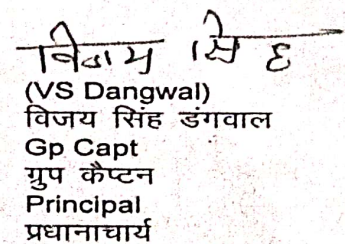 विजय सिंह
(VS Dangwal)
विजय सिंह डंगवाल
Gp Capt
ग्रुप कैप्टन
Principal
प्रधानाचार्य